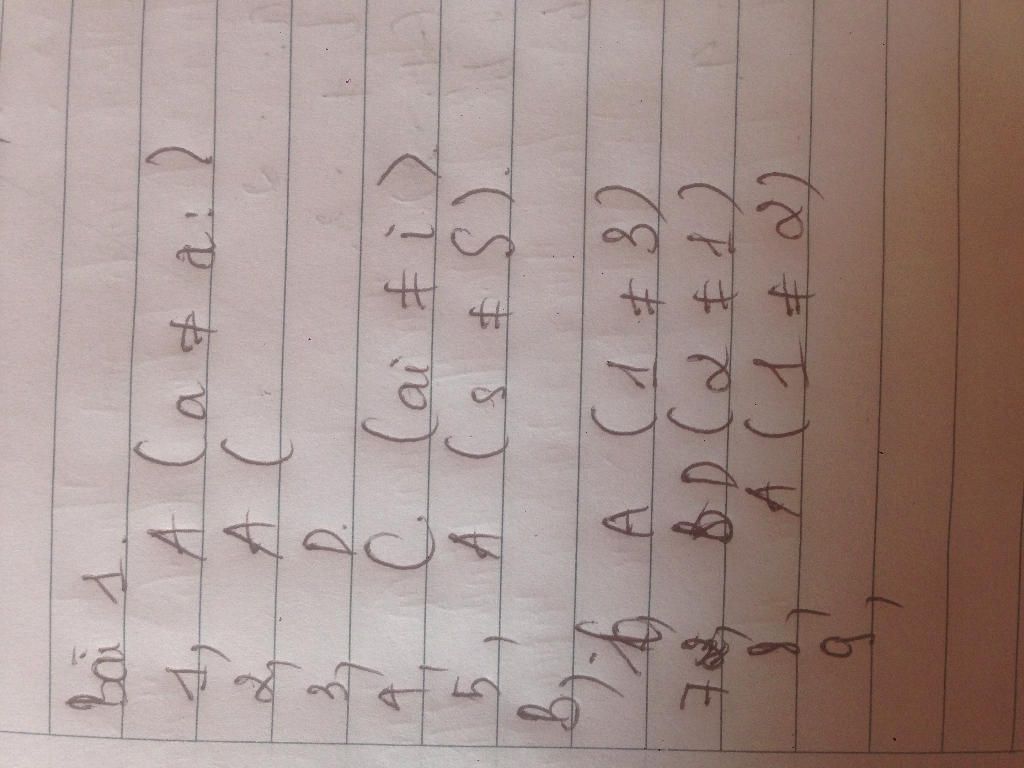 Bài 1.
1, A (a ≠ a:)
2, A (
3, D.
4, C. (ai ≠ i).
5, A (s ≠ S).
B, 6, A (1 ≠ 3)
7, D (2 ≠ 1)
8, A (1 ≠ 2)
9,